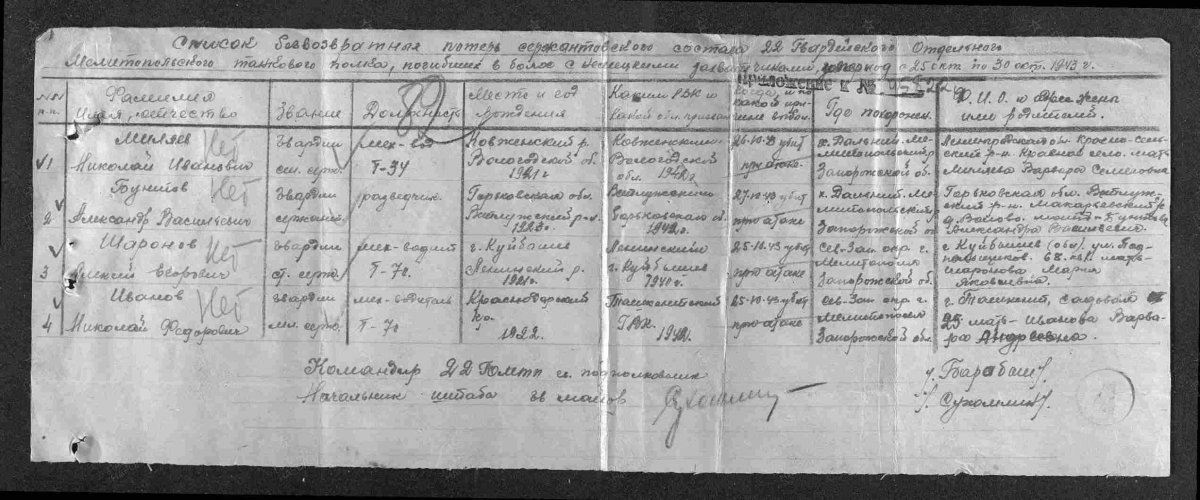 Список безвозвратных потерь сержантского состава 22 Гвардейского Отдельного
Мелитопольского танкового полка, погибших в боях с немецкими захватчиками, за период с 25 окт. по 30 окт. 1943 г.
Приложение к №
№№ п.п.
Фамилия Имя отчество
Звание
Должность
Место и год рождения
Каким РВК и какой обл. призван
Когда и по какой причине выбыл
Где похоронен
Ф.И.О. и адрес жены или родителей
1
Миляев
Николай Иванович
Нет
гвардии
сержант
мех-вод
Т-34
Ковженский р.
Вологодской об.
1921 г
Ковженским
Вологодской
обл.
26-10-43 убит
при атаке
х. Дальний Ме-
литопольский р
Запорожской об.
Ленинградская обл. Красно-сель-
ский р-н Красное село. мать
Миляева Варвара Семеновна
2
Александр Васильевич
Нет
гвардии
сержант
разведчик
Горьковская обл.
Ветлужский р-н
Ветлужским
Горьковской о
27-10-43 убит
при атаке
х. Дальний Ме-
литопольский
Запорожской о
Горьковская обл. Ветлуж-
ский р-н. Макарьевский
мать
Александра Васильевна
3
Шаронов
Алексей Егорович
Нет
гвардии
ст. серж.
мех-водит
Т-70
г. Куйбышев
Ленинский р.
1921 г.
Ленинский
г. Куйбышев
1940 г.
25-10-43 убит
при атаке
Сев-Зап. окр. г.
Мелитополя
Запорожской об.
г Куйбышев (обл). ул. Под-
польщиков. 68. кв. мать
Шаронова Мария
Яковлевна.
4
Иванов
Николай Федорович
Нет
гвардии
мл. серж.
мех-водитель
Т-70
Краснодарский
кр.
1922.
Ташкентский
ГВК.
25-10-43 убит
при атаке
Сев-Зап окр. г.
Мелитополя
Запорожской обл.
г. Ташкент, Садовая
25 мать- Иванова Варва-
ра Андреевна.
Командир 22 гв. подполковник
/Барабаш/.
Начальник штаба гв майор
/Сухомлин/.